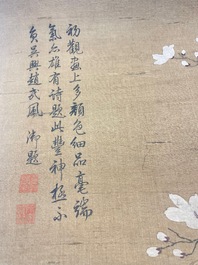 初觀画上多顏色細品毫端
氣亦雄有詩題此豐神極不
負吳興趙氏風 御題